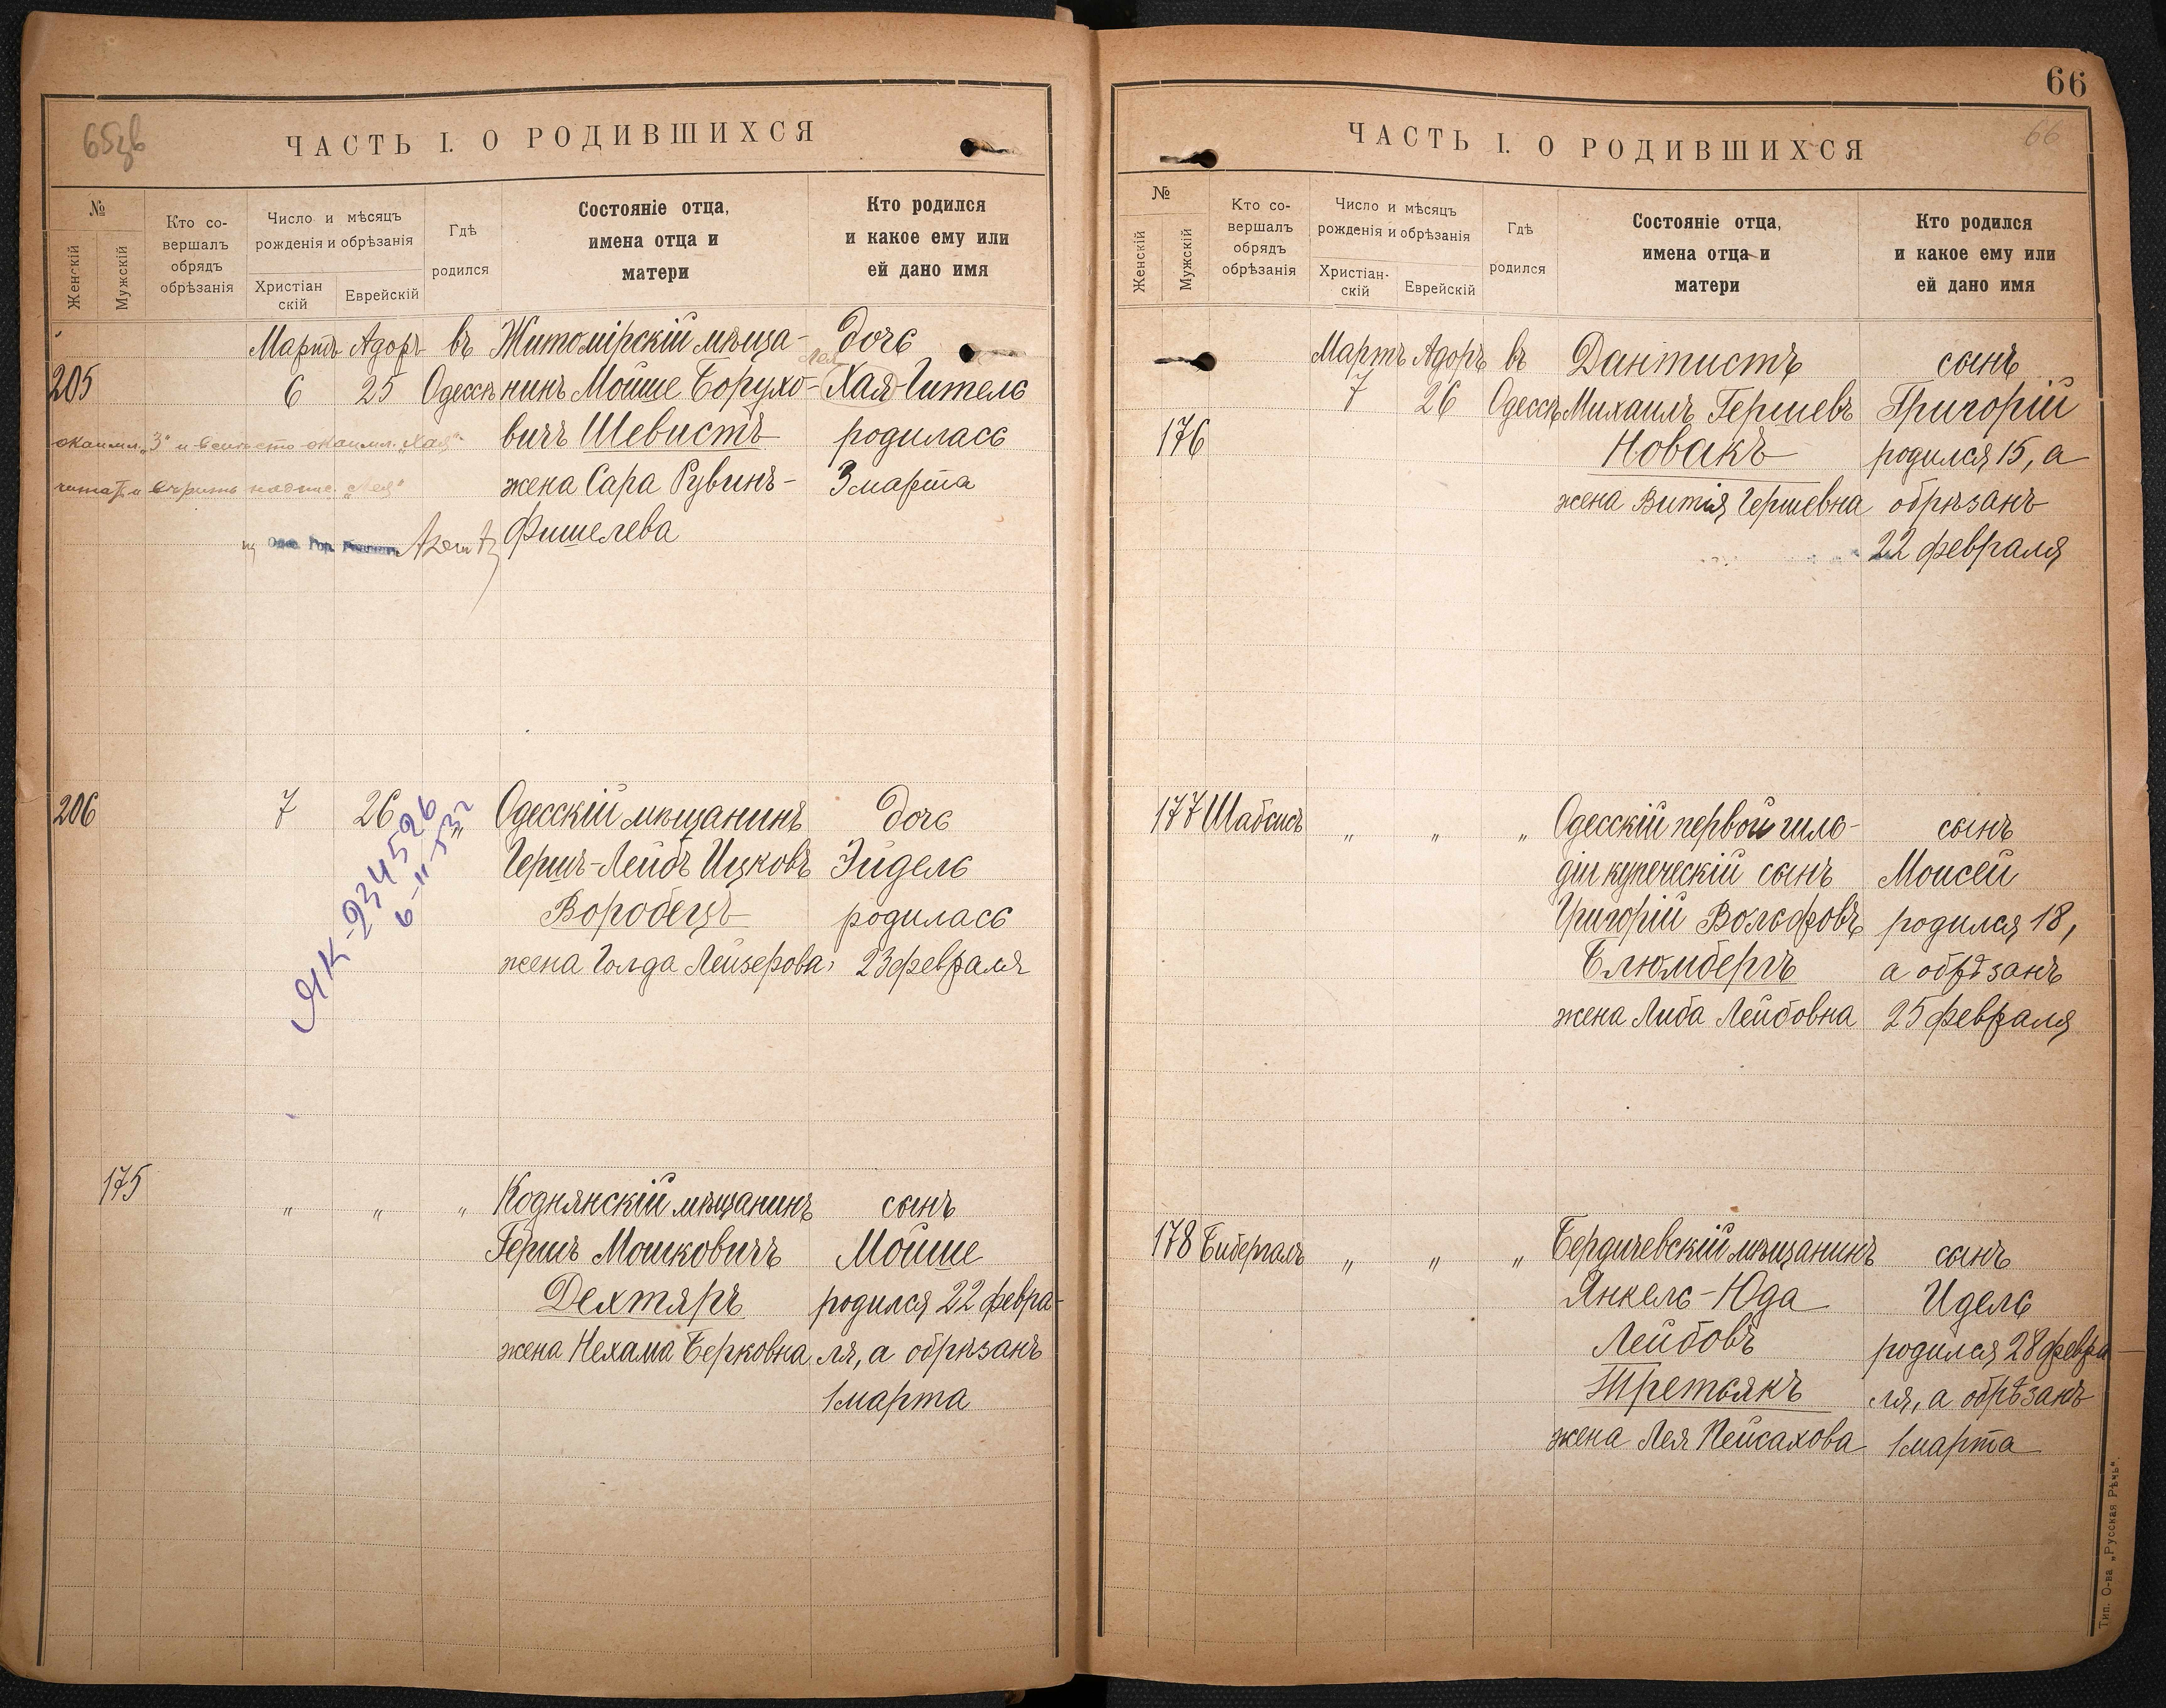 65зв
ЧАСТЬ I. О РОДИВШИХСЯ
№
Женскій
Мужскій
Кто со-
вершалъ
обрядъ
обрѣзанія
Число и мѣсяцъ
рожденія и обрѣзанія
Христіан
скій
Еврейскій
Гдѣ
родился
Состояніе отца,
имена отца и
матери
Кто родился
и какое ему или
ей дано имя
Мартъ Адоръ въ Житомірскій мѣща- дочь
Лея
205 6 25 Одессѣ нинъ Мойше Борухо- Хая-Гитель
вичъ Шевистъ родилась
жена Сара Рувинъ- 3 марта
Фишелева
206 7 26 " Одесскій мѣщанинъ дочь
Гершъ-Лейбъ Ицковъ Эйдель
Воробецъ родилась
жена Голда Лейзерова, 23 февраля
ЯК-234526
175 " " " Коднянскій мѣщанинъ сынъ
Гершъ Мошковичъ Мойше
Дехтяръ родился 22 февра-
жена Нехама Берковна ля, а обрѣзанъ
1 марта
66
66
ЧАСТЬ I. О РОДИВШИХСЯ
№
Женскій
Мужскій
Кто со-
вершалъ
обрядъ
обрѣзанія
Число и мѣсяцъ
рожденія и обрѣзанія
Христіан-
скій
Еврейскій
Гдѣ
родился
Состояніе отца,
имена отца и
матери
Кто родился
и какое ему или
ей дано имя
Мартъ Адоръ въ Дантистъ сынъ
7 26 Одессѣ Михаилъ Гершевъ Григорій
176 Новакъ родился 15, а
жена Витія Гершевна обрѣзанъ
22 февраля
177 Шабсисъ " " " Одесскій первой гиль- сынъ
діи купеческій сынъ Моисей
Григорій Вольфовъ родился 18,
Блюмбергъ а обрѣзанъ
жена Либа Лейбовна 25 февраля
178 Бибергалъ " " " Бердичевскій мѣщанинъ сынъ
Янкель-Юда Идель
Лейбовъ родился 28 февра
Третьякъ ля, а обрѣзанъ
жена Лея Пейсахова 1 марта
Тип. О-ва „Русская Рѣчь".